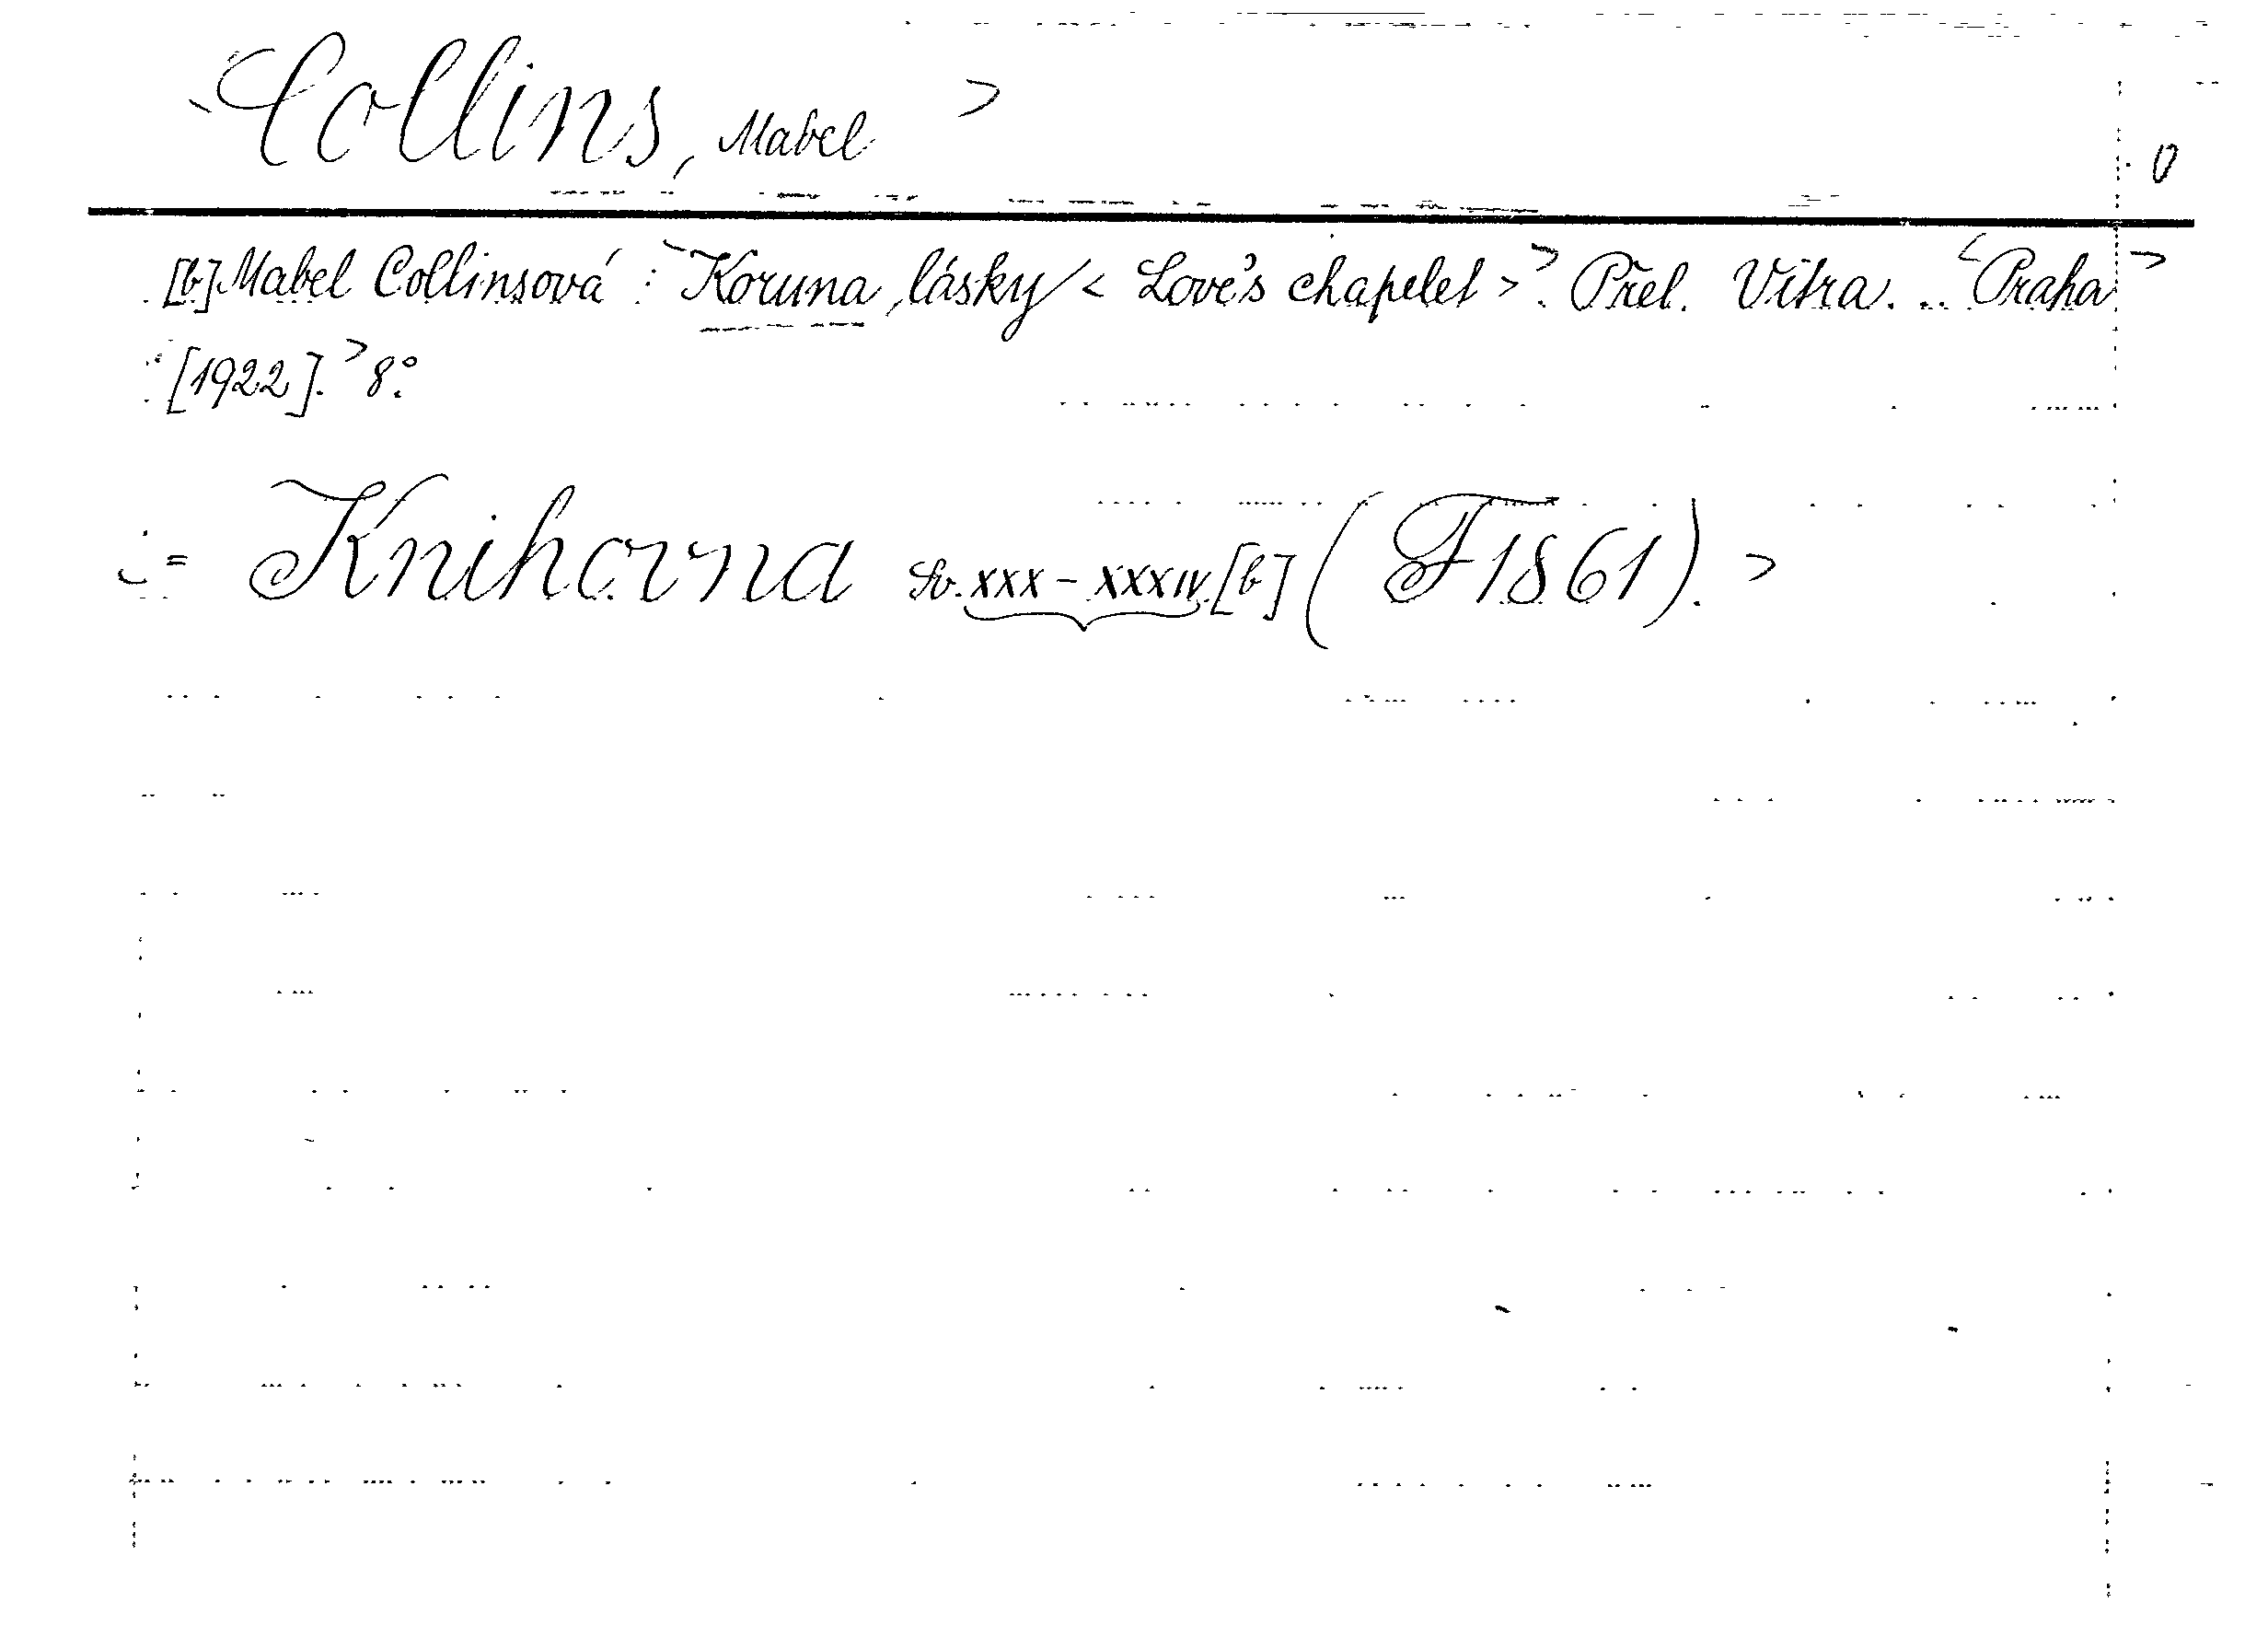 Collins, Mabel >
0
[b] Mabel Collinsová : Koruna lásky < Love's chapelet >. Přel. Vitra. .. <Praha>
[1922].> 8°.
= Knihovna Sv. XXX - XXXIV. [b] (F 1861). >